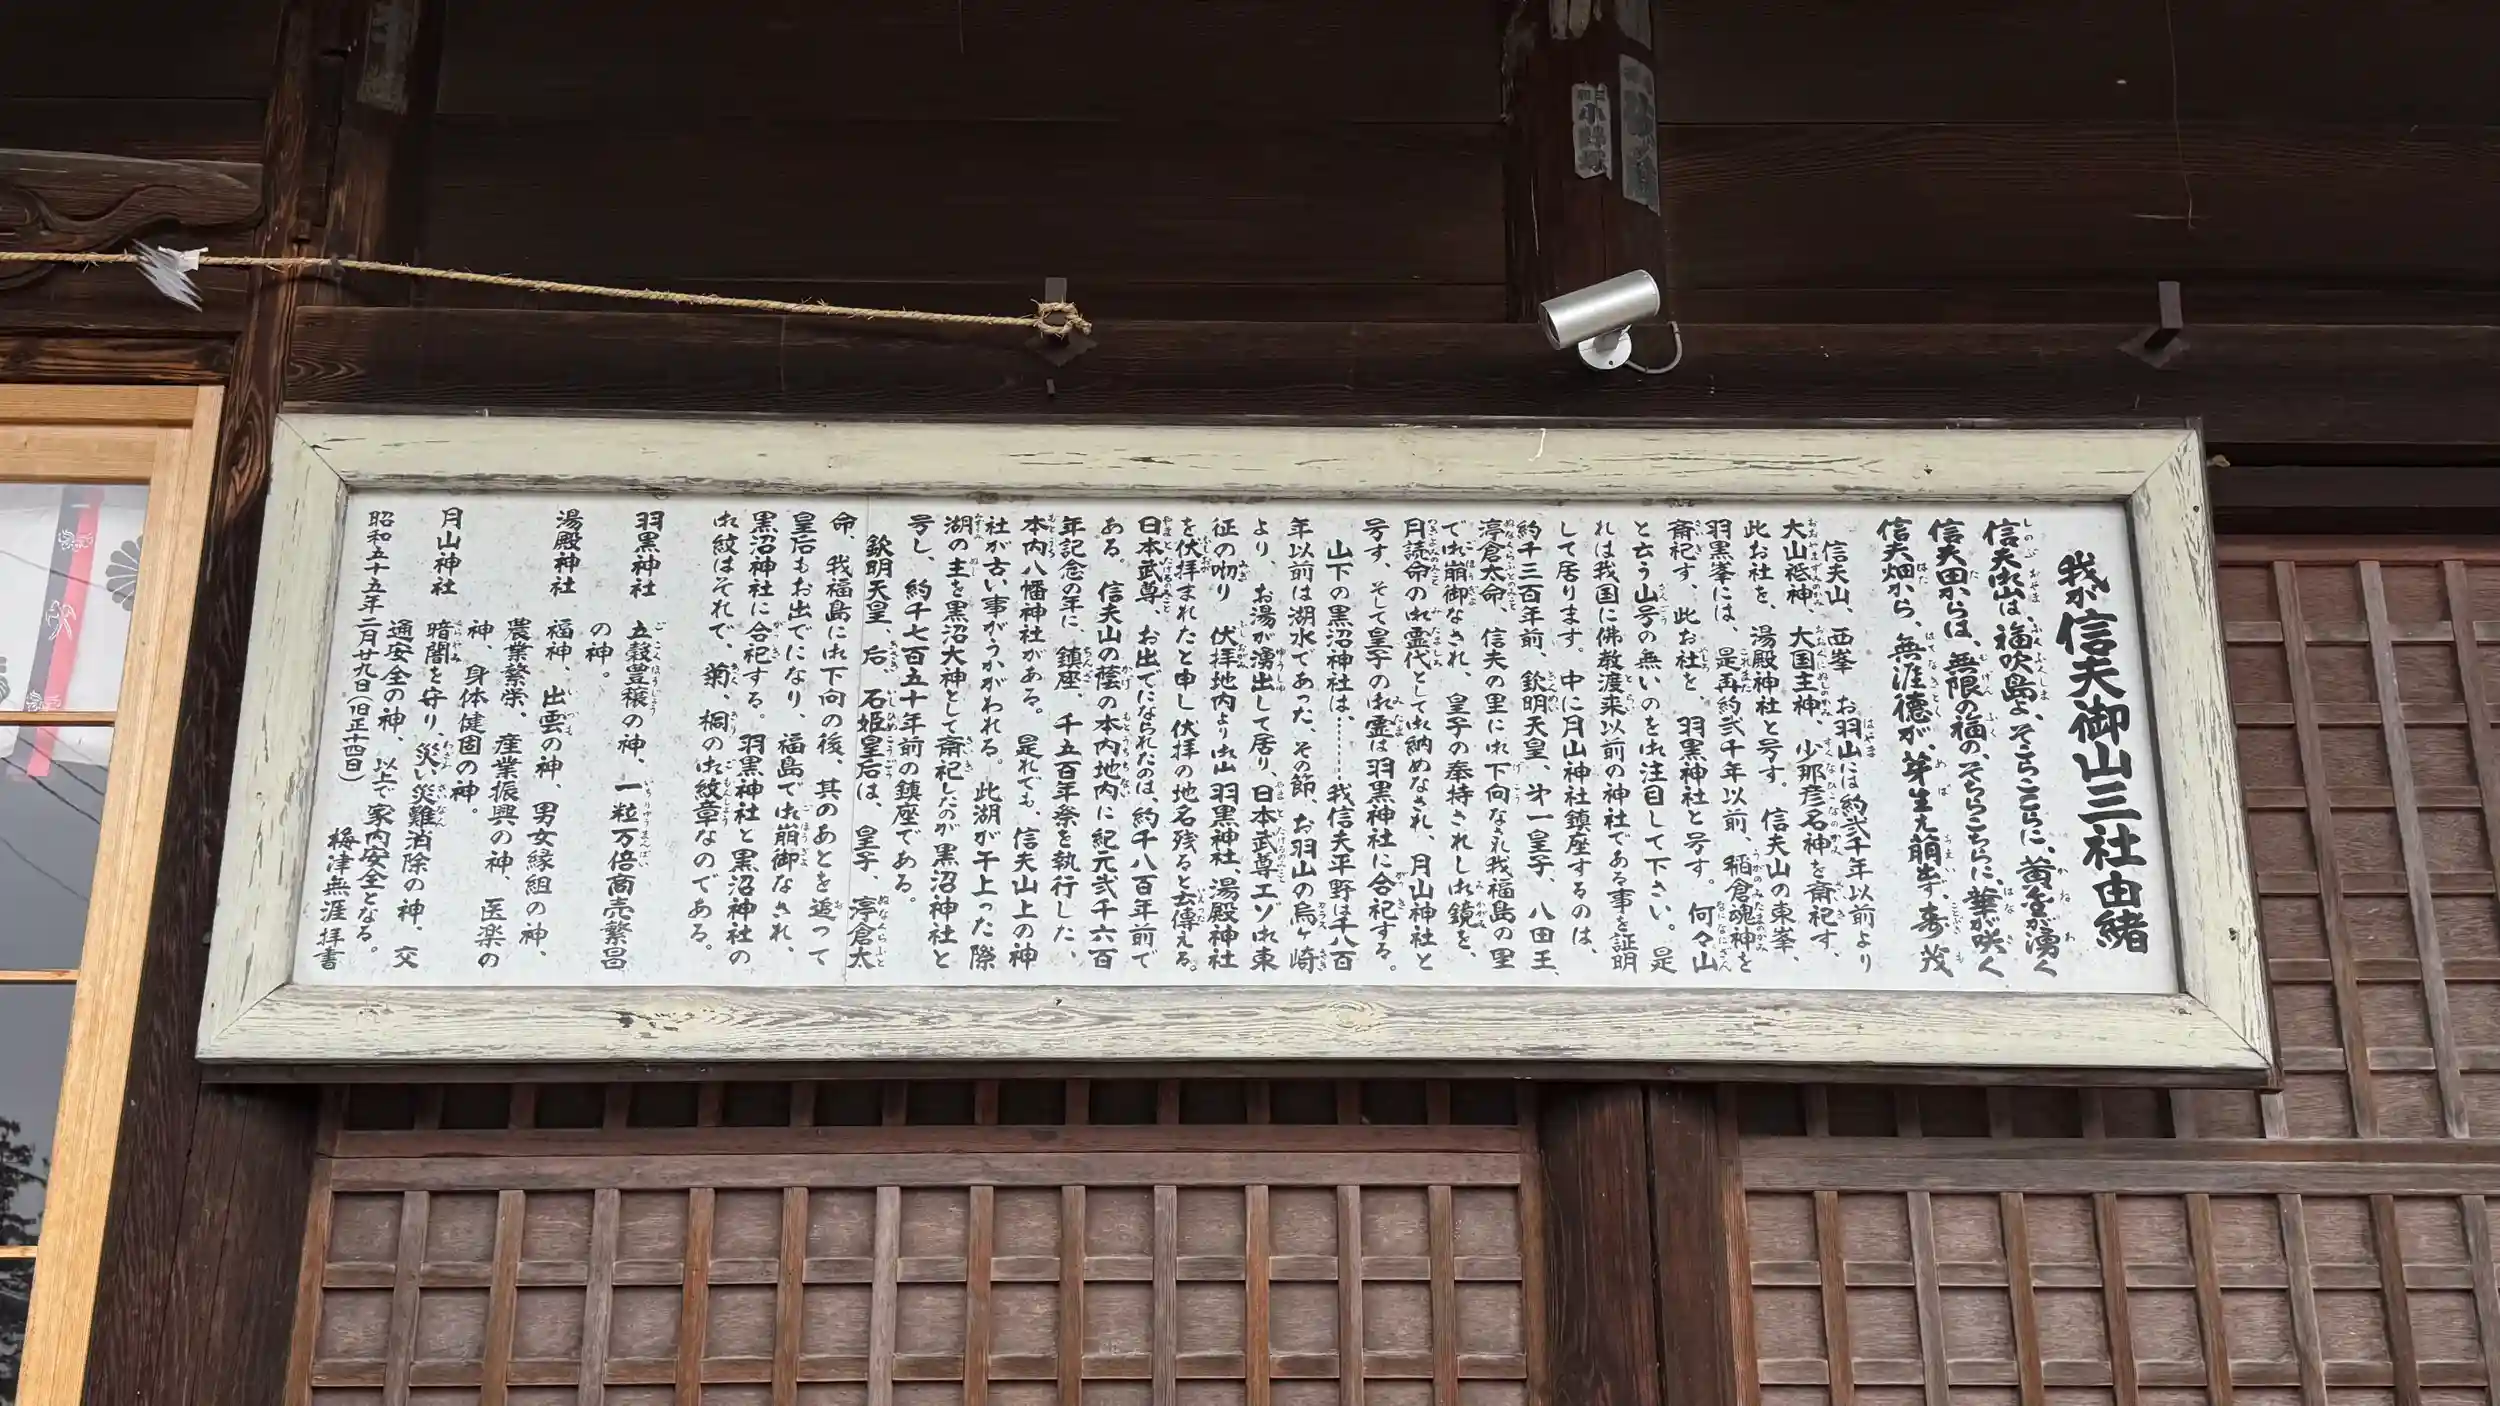 我が信夫御山三社由緒
信夫御山は、福吹島よ、そこらここらに、黄金が湧く
信夫田からは、無限の福の、そちらこちらに、華が咲く
信夫畑から、無涯徳が、芽生え萠出ず、寿茂
信夫山、西峯 お羽山には約弐千年以前より
大山祗神 大国主神、少那彦名神を斎祀す、
此お社を、湯殿神社と号す。信夫山の東峯、
羽黒峯には、是再約弐千年以前、稲倉魂神を
斎祀す、此お社を、羽黒神社と号す。何々山
と云う山号の無いのを御注目して下さい。是
れは我国に佛教渡来以前の神社である事を証明
して居ります。中に月山神社鎮座するのは、
約千三百年前、欽明天皇、第一皇子、八田王、
渟倉太命、信夫の里に御下向なされ我福島の里
で御崩御なされ、皇子の奉持されし御鏡を、
月読命の御霊代として御納めなされ、月山神社と
号す、そして皇子の御霊は羽黒神社に合祀する。
山下の黒沼神社は、………我信夫平野は千八百
年以前は湖水であった、その節、お羽山の烏ヶ崎
より、お湯が湧出して居り、日本武尊エゾ御東
征の砌り 伏拝地内より御山 羽黒神社、湯殿神社
を伏拝まれたと申し伏拝の地名残ると云傳える。
日本武尊、お出でになられたのは、約千八百年前で
ある。信夫山の蔭の本内地内に紀元弐千六百
年記念の年に、鎮座、千五百年祭を執行した、
本内八幡神社がある。是れでも、信夫山上の神
社が古い事がうかがわれる。此湖が干上った際
湖の主を黒沼大神として斎祀したのが黒沼神社と
号し、約千七百五十年前の鎮座である。
欽明天皇、后、石姫皇后は、皇子、渟倉太
命、我福島に御下向の後、其のあとを追って
皇后もお出でになり、福島で御崩御なされ、
黒沼神社に合祀する。羽黒神社と黒沼神社の
御紋はそれで、菊、桐の御紋章なのである。
羽黒神社 五穀豊穣の神、一粒万倍商売繁昌
の神。
湯殿神社 福神、出雲の神、男女縁組の神、
農業繁栄、産業振興の神、医楽の
神、身体健固の神。
月山神社 暗闇を守り、災い災難消除の神、交
通安全の神、以上で家内安全となる。
昭和五十五年二月廿九日(旧正十四日) 梅津無涯拝書